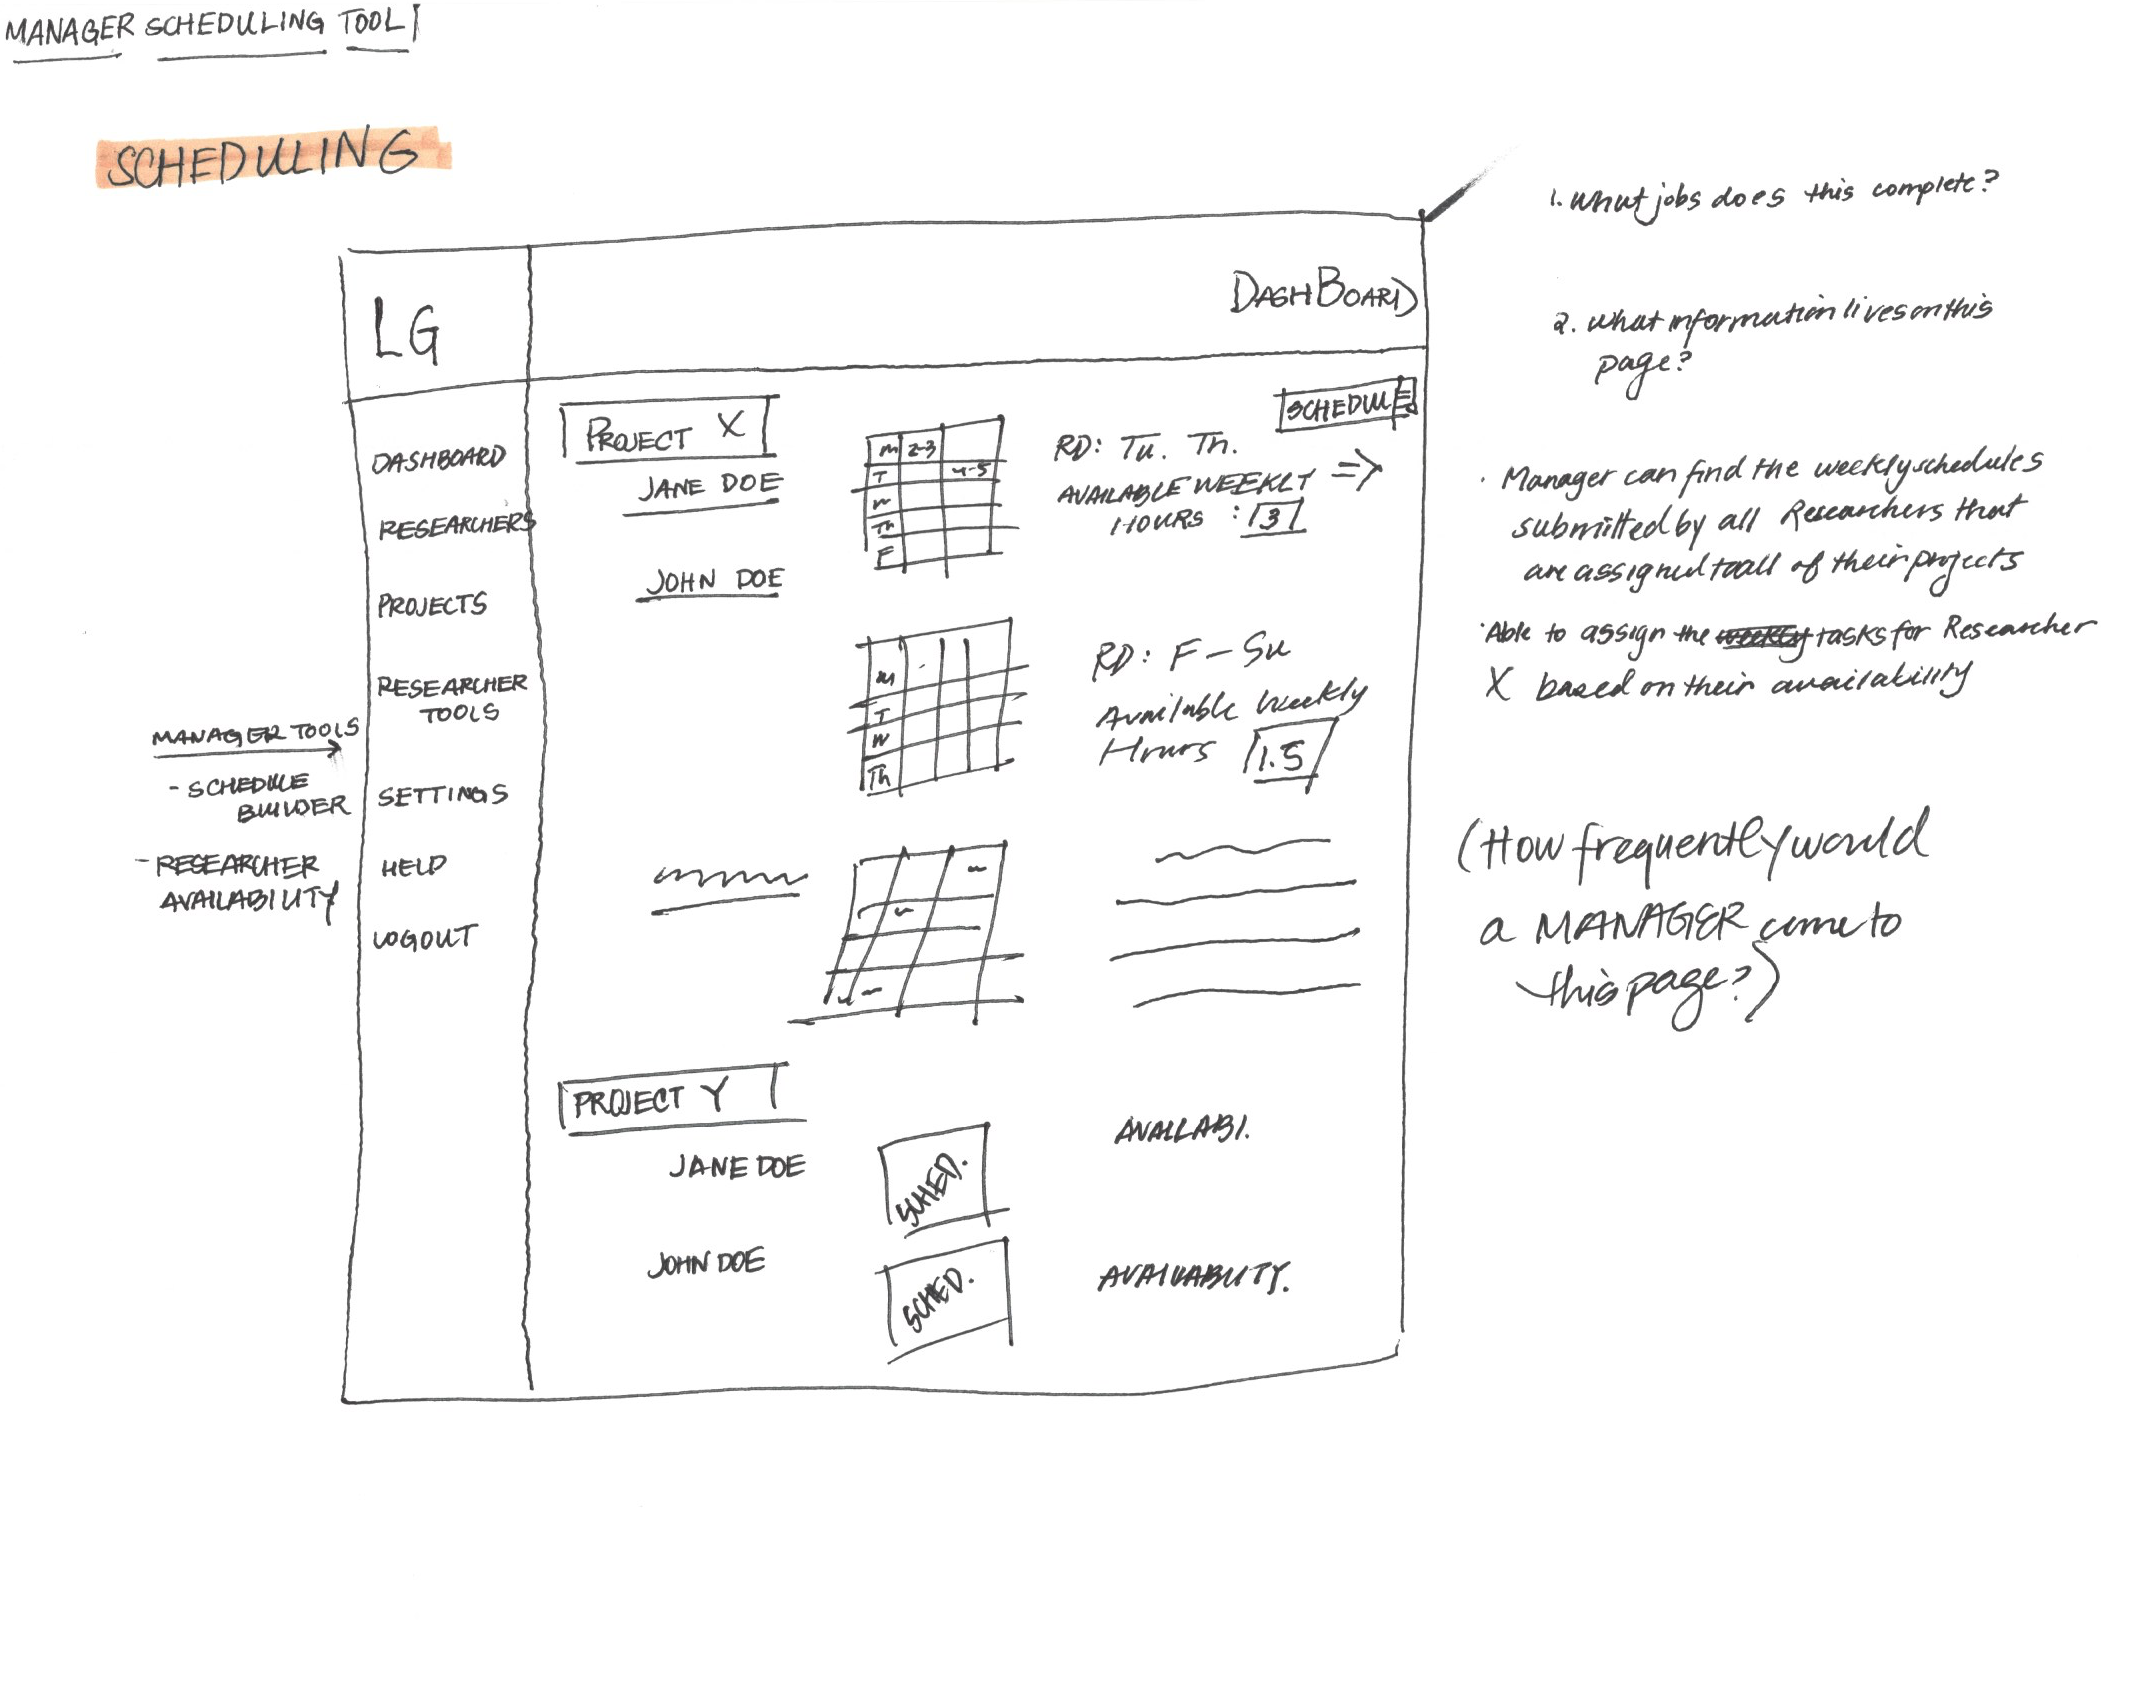 MANAGER SCHEDULING TOOL
SCHEDULING
LG
DASHBOARD
DASHBOARD
RESEARCHERS
PROJECTS
RESEARCHER
TOOLS
SETTINGS
HELP
LOGOUT
MANAGER TOOLS
- SCHEDULE
BUILDER
- RESEARCHER
AVAILABILITY
PROJECT X
JANE DOE
JOHN DOE
M 2-3
T 4-5
W
Th
F
SCHEDULE
RD: Tu. Th.
AVAILABLE WEEKLY =>
HOURS : 3
M
T
W
Th
RD: F - Su
Available Weekly
Hours 1.5
PROJECT Y
JANE DOE
SCHED.
AVAILABI.
JOHN DOE
SCHED.
AVAILABILITY.
1. What jobs does this complete?
2. What information lives on this
page?
· Manager can find the weekly schedules
submitted by all Researchers that
are assigned to all of their projects
· Able to assign the weekly tasks for Researcher
X based on their availability
(How frequently would
a MANAGER come to
this page?)